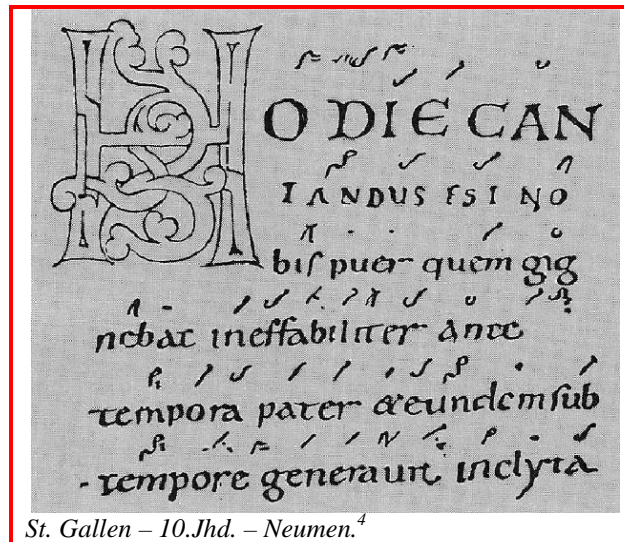 HODIE CAN
TANDUS EST NO
bis puer quem gig
nebat ineffabiliter ante
tempora pater & eundem sub
tempore generauit inclyta
St. Gallen – 10.Jhd. – Neumen.4